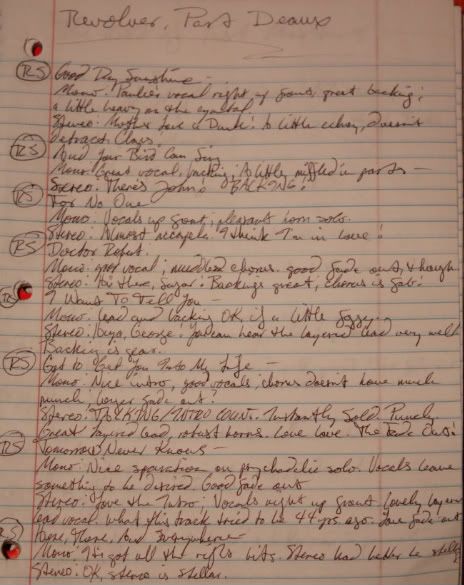 Revolver, Part Deaux
RS Good Day Sunshine -
Mono: Paulie's vocal right up front, great backing;
a little heavy on the cymbal
Stereo: Mother Love a Duck! A little echoey, doesn't
detract. Clear.
RS And Your Bird Can Sing
Mono: Great vocal, backing; A little muffled in parts -
Stereo: There's John! BACKING!
RS For No One
Mono: Vocals up front, pleasant horn solo.
Stereo: Almost acapela. I think I'm in love!
RS Doctor Robert.
Mono: good vocal; muddled chorus. good fade out, though
Stereo: Hi there, Sugar! Backings great, chorus is fab!
RS I Want To Tell You -
Mono: Lead and backing OK if a little foggy.
Stereo: Heya, George! You can hear the layered lead very well
Backing is gear.
RS Got to Get You Into My Life -
Mono: Nice intro, good vocals, chorus doesn't have much
punch, longer fade out!
Stereo: TALKING/INTRO COUNT. Instantly Sold. Punchy.
Great layered lead, robust horns. Love love. The Fade Out!
RS Tomorrow Never Knows -
Mono: Nice separation on psychadelic solo. Vocals leave
something to be desired. Good fade out
Stereo: Love the intro. Vocals right up front. Lovely layered
lead vocal. What this track tried to be 44 yrs. ago. Love fade out
RS Here, There, And Everywhere
Mono: It's got all the right bits. Stereo had better be stellar
Stereo: OK, stereo is stellar.